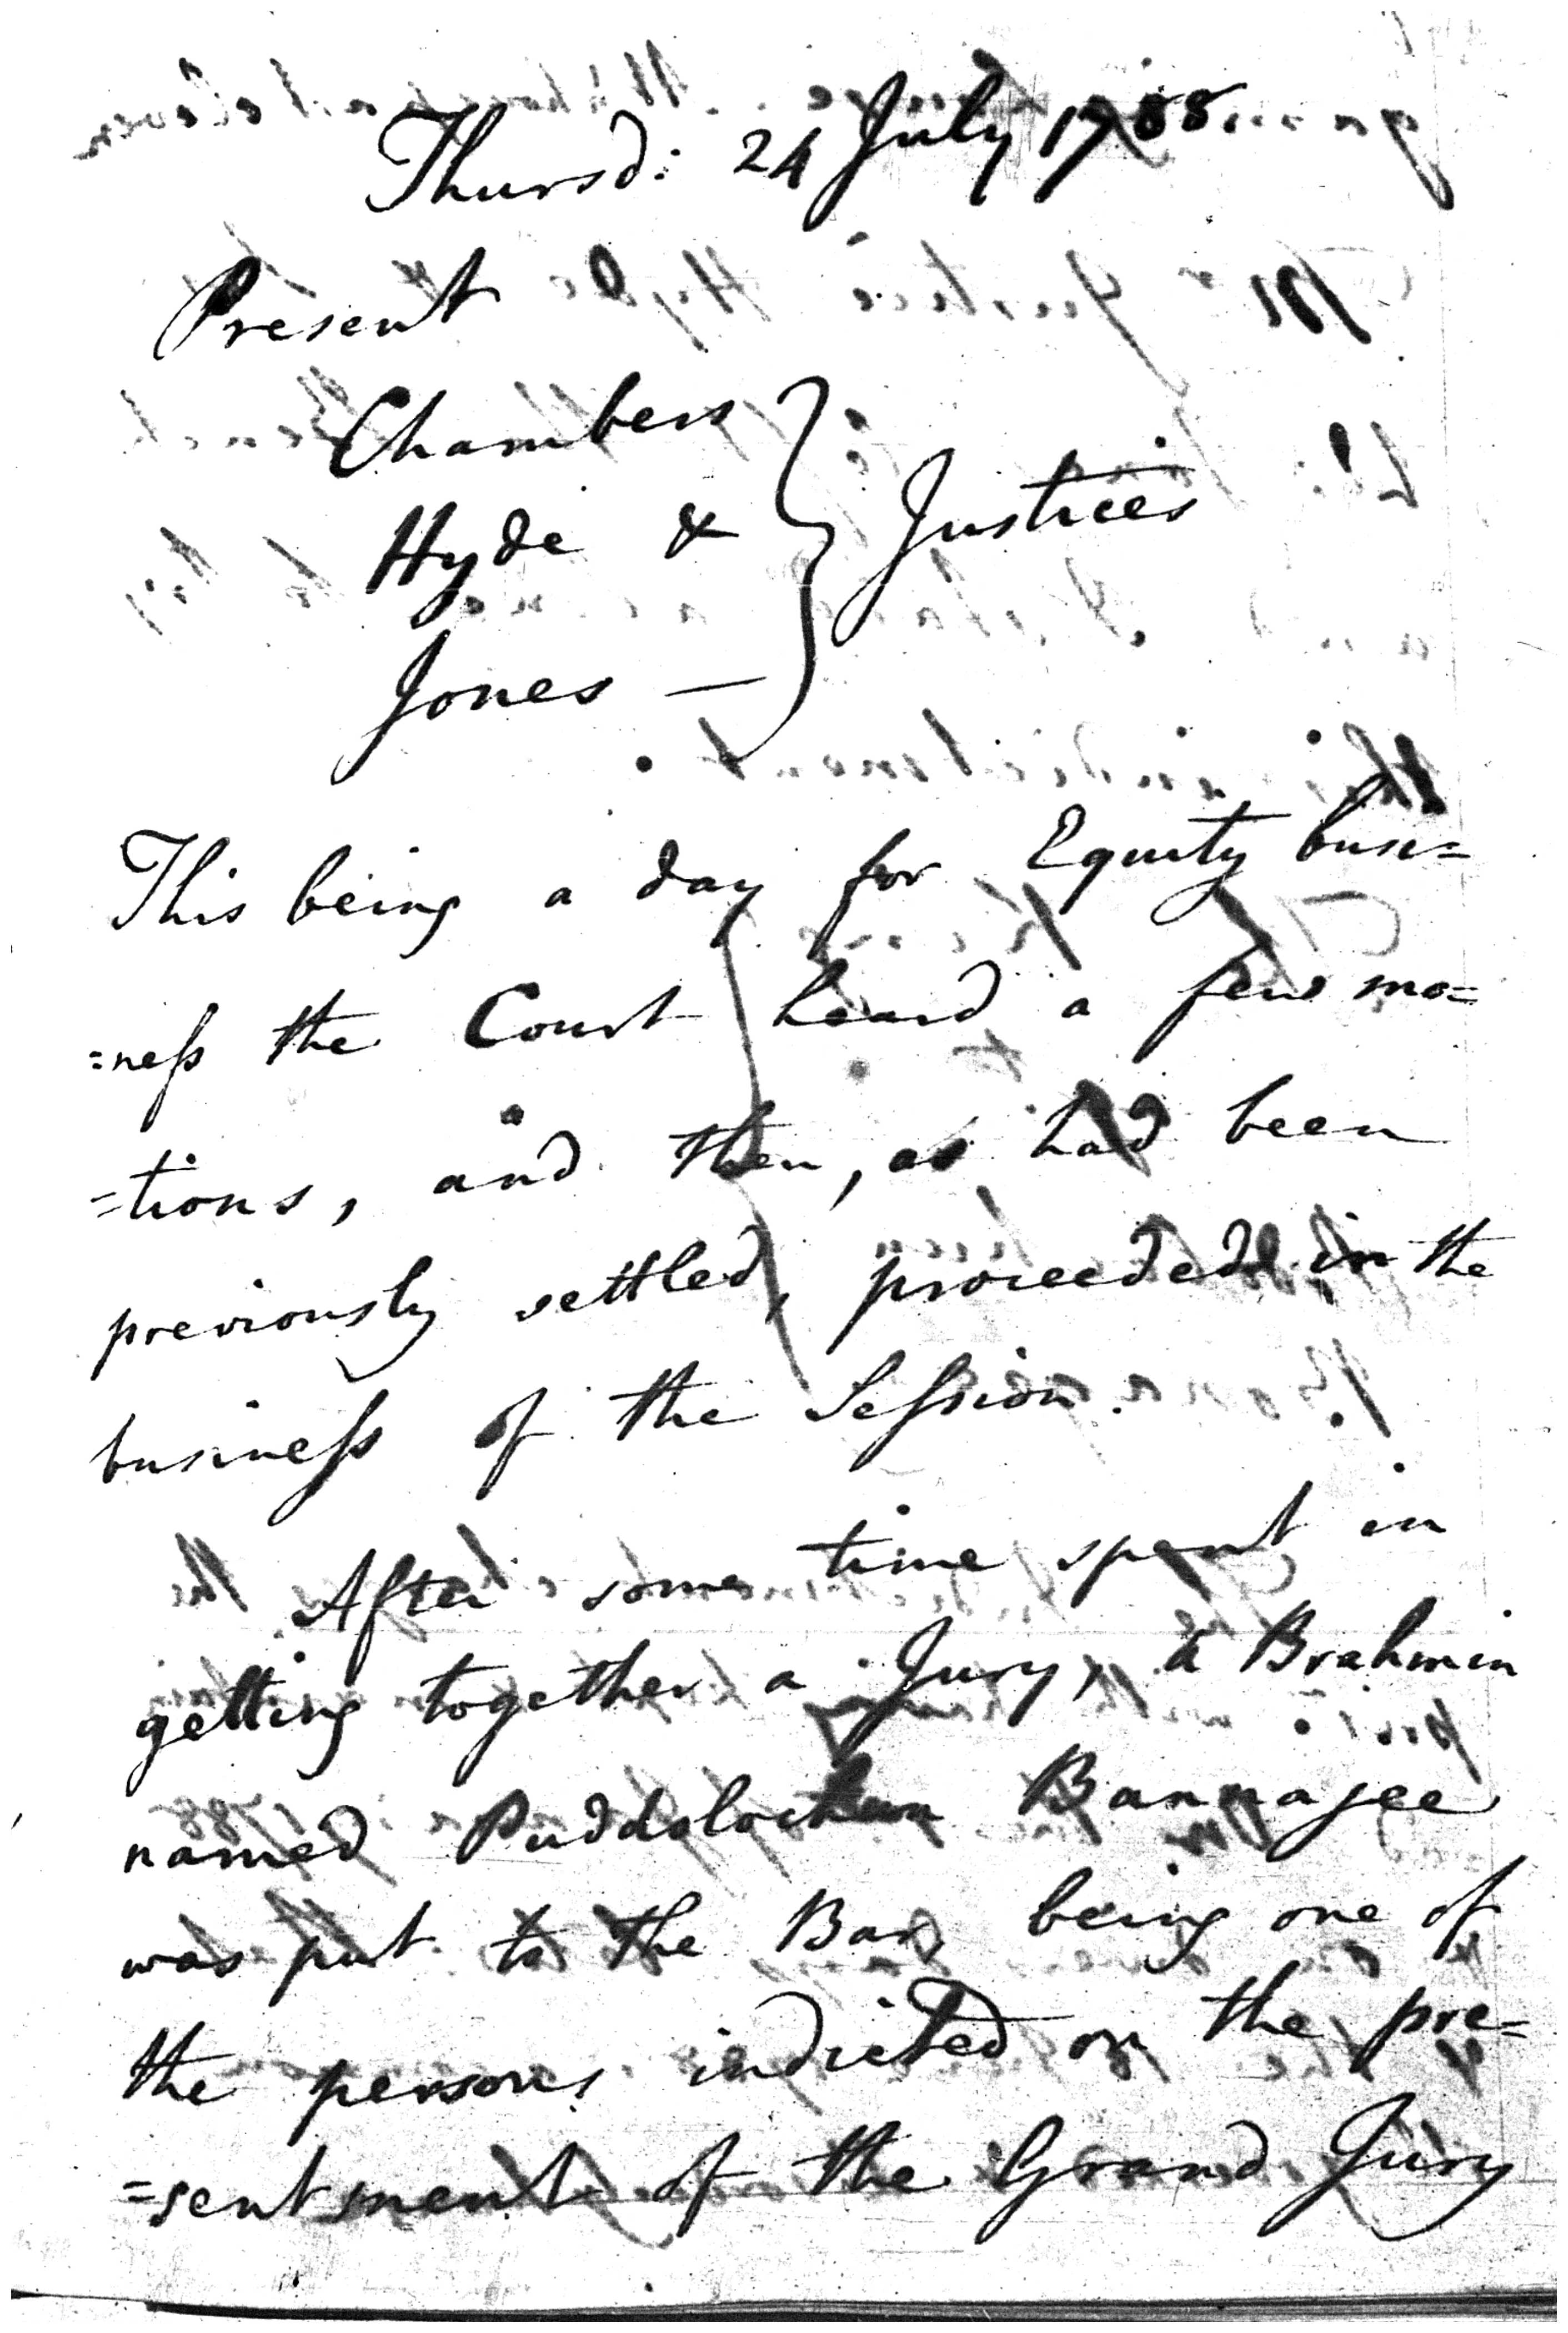 Thursd: 24 July 1788
Present
Chambers
Hyde &
Jones —
Justices
This being a day for Equity busi=
=ness the Court heard a few mo=
=tions, and then, as had been
previously settled, proceeded in the
business of the Session.
After some time spent in
getting together a Jury, a Brahmin
named Puddolochun Bannajee
was put to the Bar being one of
the persons indicted on the pre=
=sentment of the Grand Jury